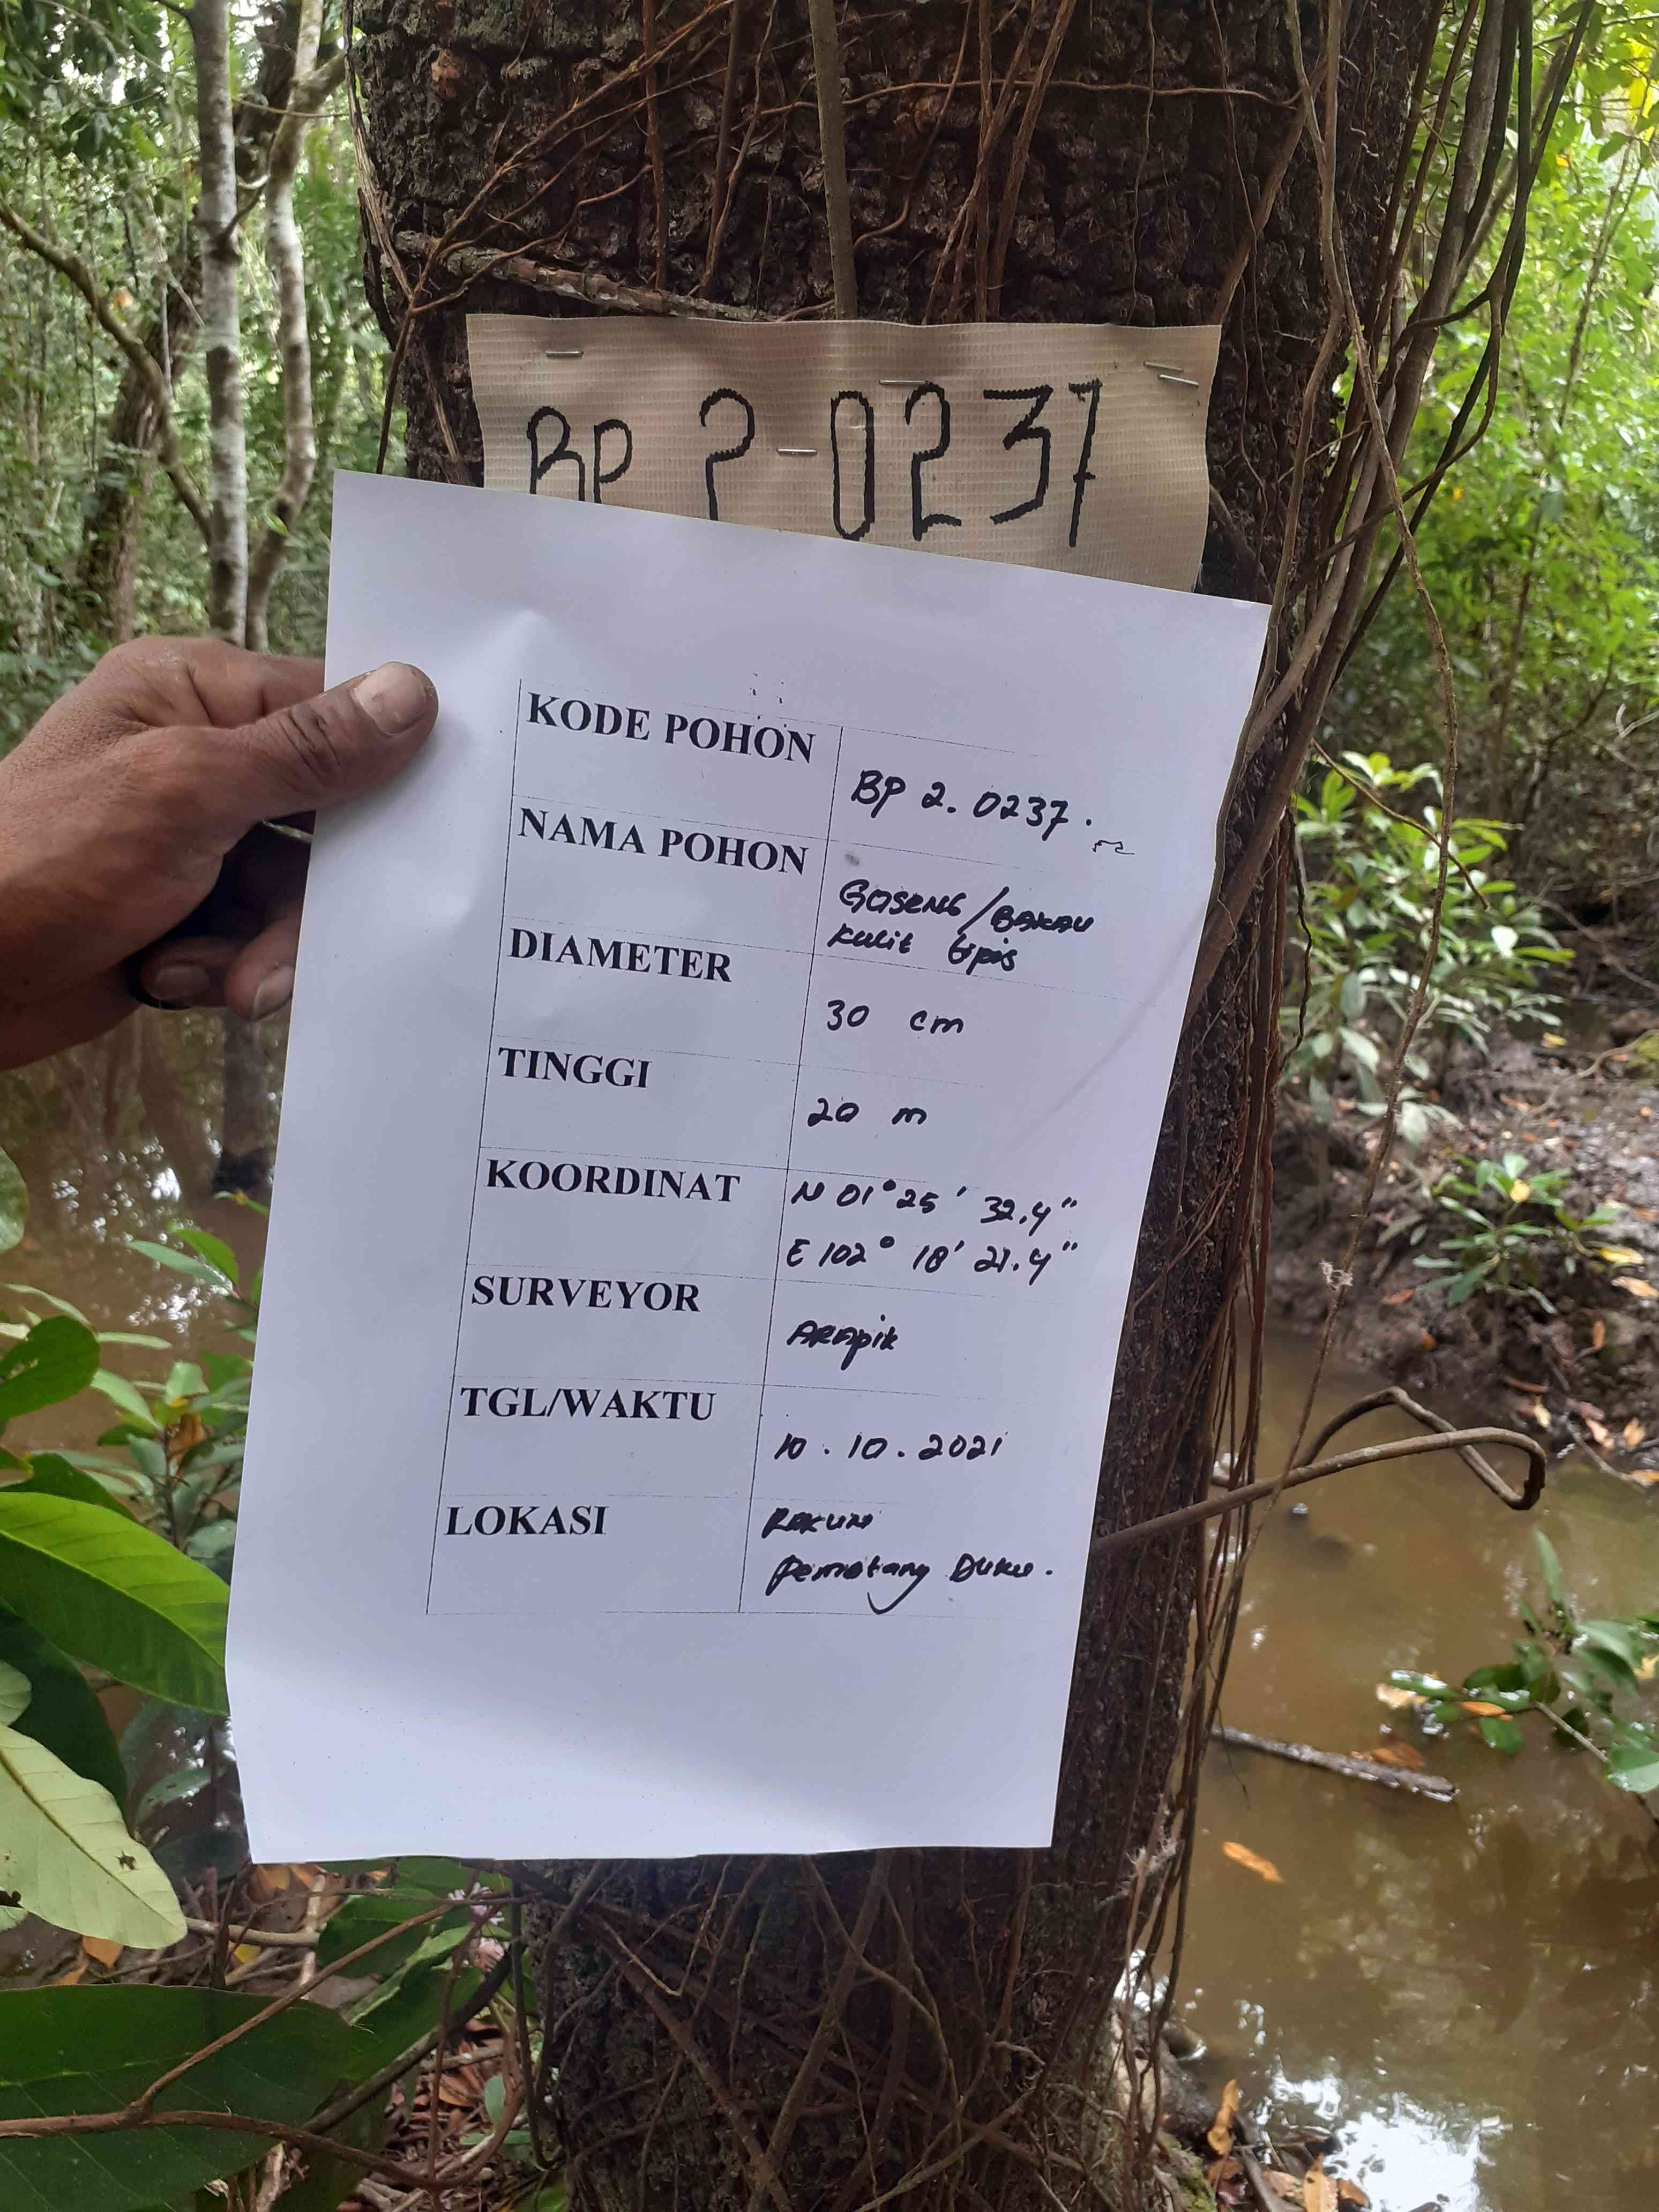 BP 2-0237
KODE POHON
BP 2. 0237.
NAMA POHON
Goseng/Bakau
Kulit tipis
DIAMETER
30 cm
TINGGI
20 m
KOORDINAT
N 01° 25' 32.4"
E 102° 18' 21.4"
SURVEYOR
ARapik
TGL/WAKTU
10.10.2021
LOKASI
Pematang Duku.